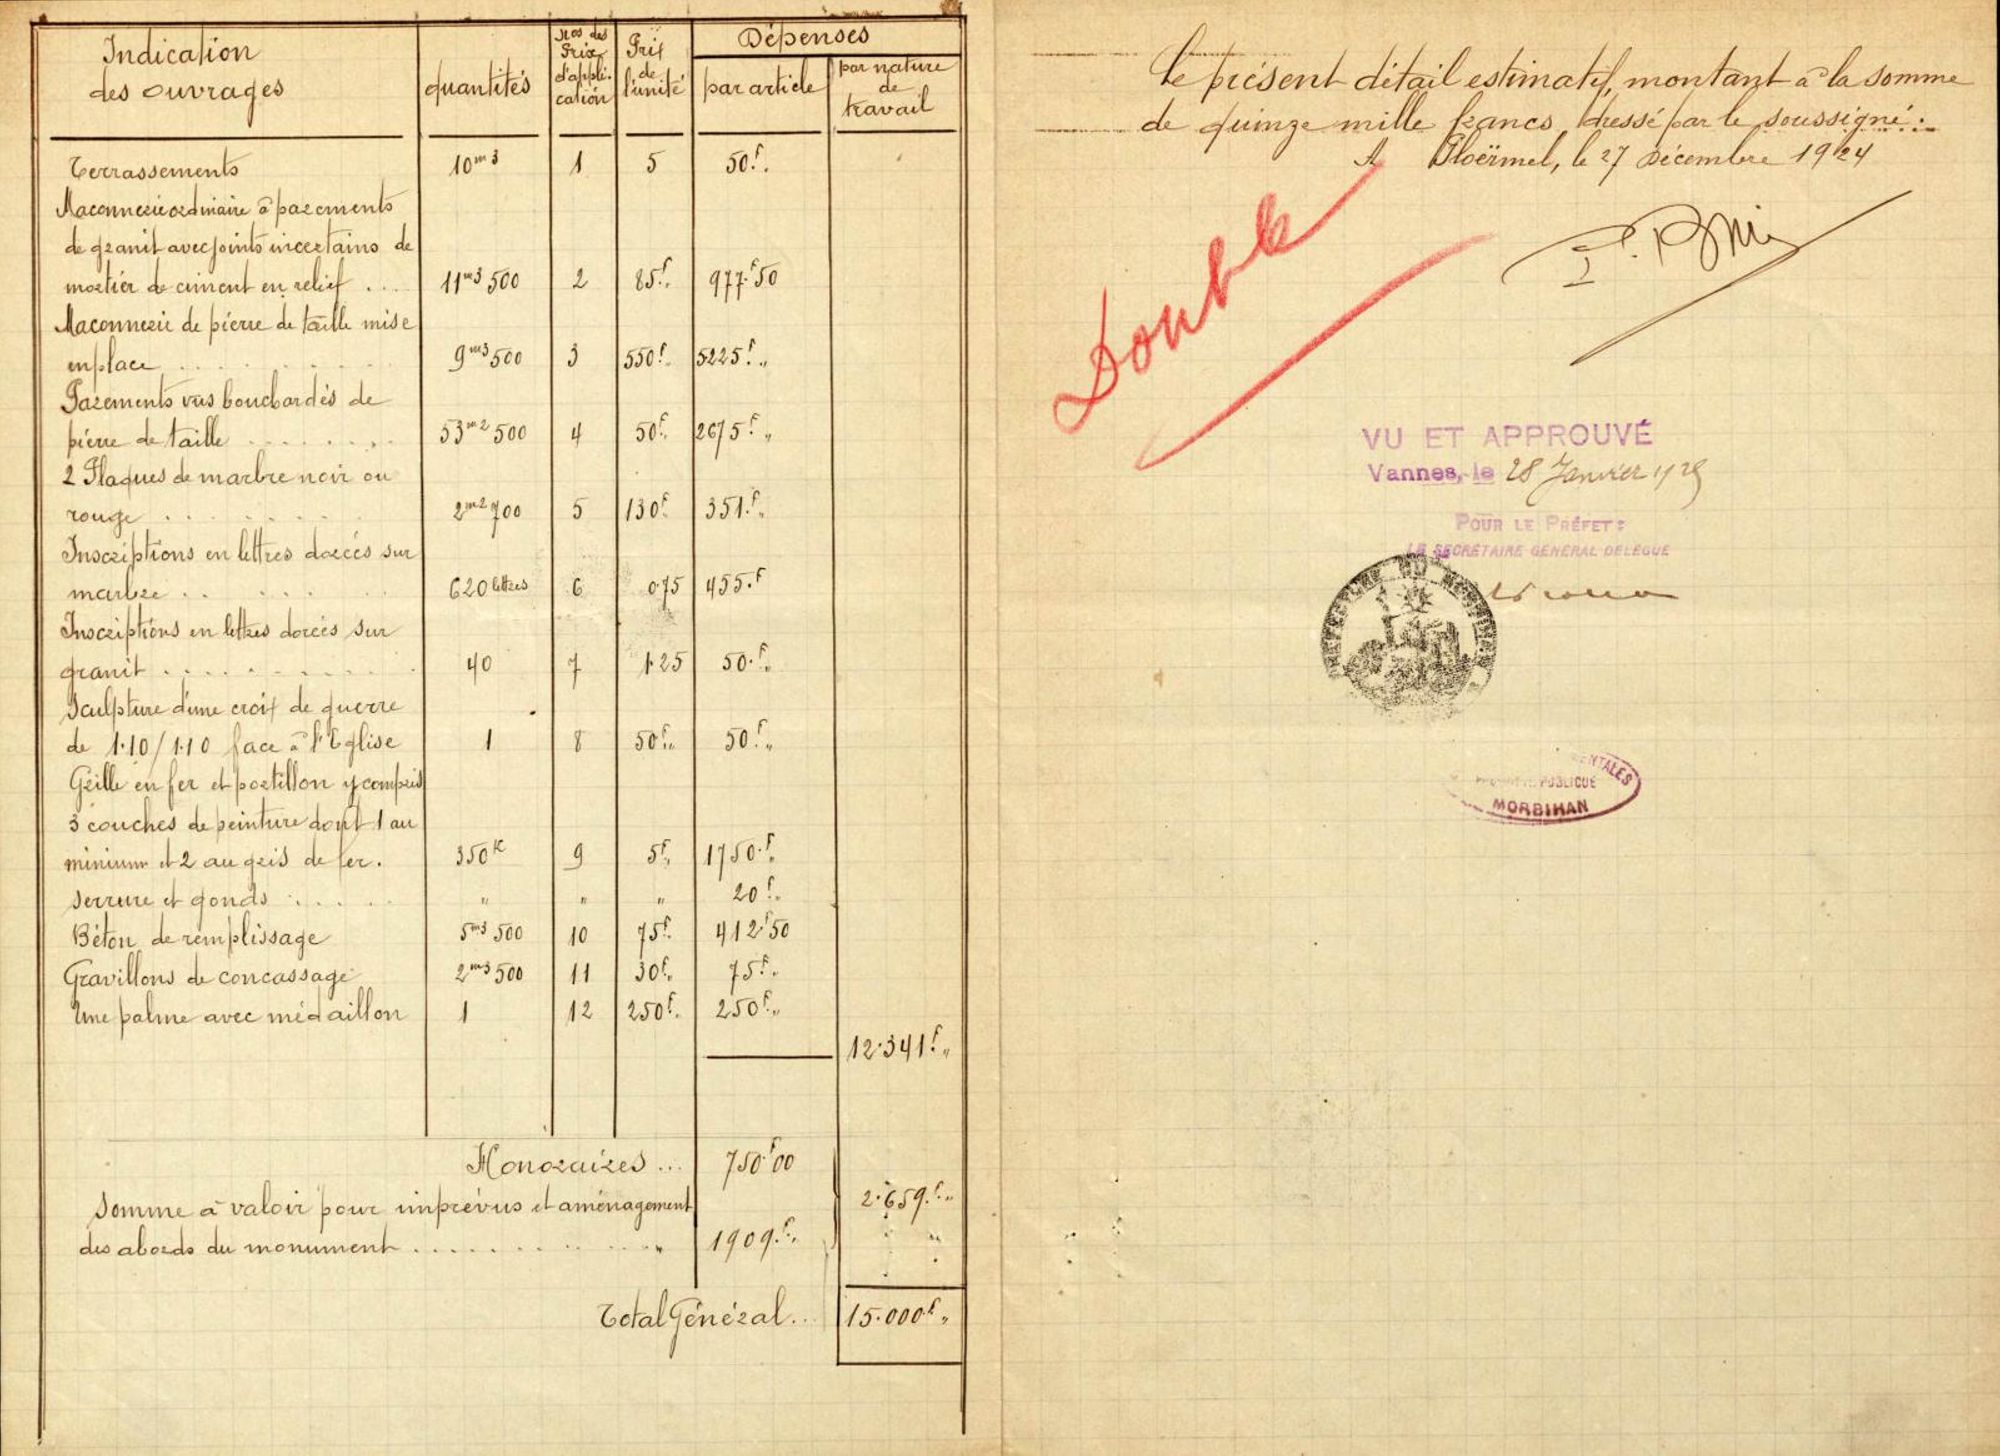 Indication des ouvrages | quantités | Nos des Prix d'application | Prix de l'unité | Dépenses par article | par nature de travail
Terrassements 10m3 1 5 50f.
Maconnerie ordinaire à parements
de granit avec joints incertains de
mortier de ciment en relief .... 11m3 500 2 85f.. 977.f50
Maconnerie de pierre de taille mise
en place 9m3 500 3 550f.. 5225f.,,
Parements vus bouchardés de
pierre de taille 53m2 500 4 50f.. 2675f.,,
2 Plaques de marbre noir ou
rouge 2m2 700 5 130f. 351.f,,
Inscriptions en lettres dorées sur
marbre .. 620 lettres 6 0.75 455.f
Inscriptions en lettres dorées sur
granit 40 7 1.25 50.f,,
Sculpture d'une croix de guerre
de 1.10/1.10 face à l'Eglise 1 8 50f.,, 50f.,,
Grille en fer et portillon y compris
3 couches de peinture dont 1 au
minium et 2 au gris de fer. 350K 9 5f,, 1750.f,,
Serrure et gonds " " " 20f..
Béton de remplissage 5m3 500 10 75f. 412f50
Gravillons de concassage 2m3 500 11 30f,, 75f..
Une palme avec médaillon 1 12 250f. 250f.,,
12.341f.,,
Honoraires ... 750f00
Somme à valoir pour imprévus et aménagement 2.659.f.,,
des abords du monument 1909.f.,,
Total Général... 15.000f.,,
Le présent détail estimatif, montant à la somme
de quinze mille francs, dressé par le soussigné.
A Ploërmel, le 27 Décembre 1924
Double
VU ET APPROUVÉ
Vannes, le 28 Janvier 1925
POUR LE PRÉFET:
LE SECRÉTAIRE GÉNÉRAL DÉLÉGUÉ
PRÉFECTURE DU MORBIHAN
PUBLIQUE
MORBIHAN